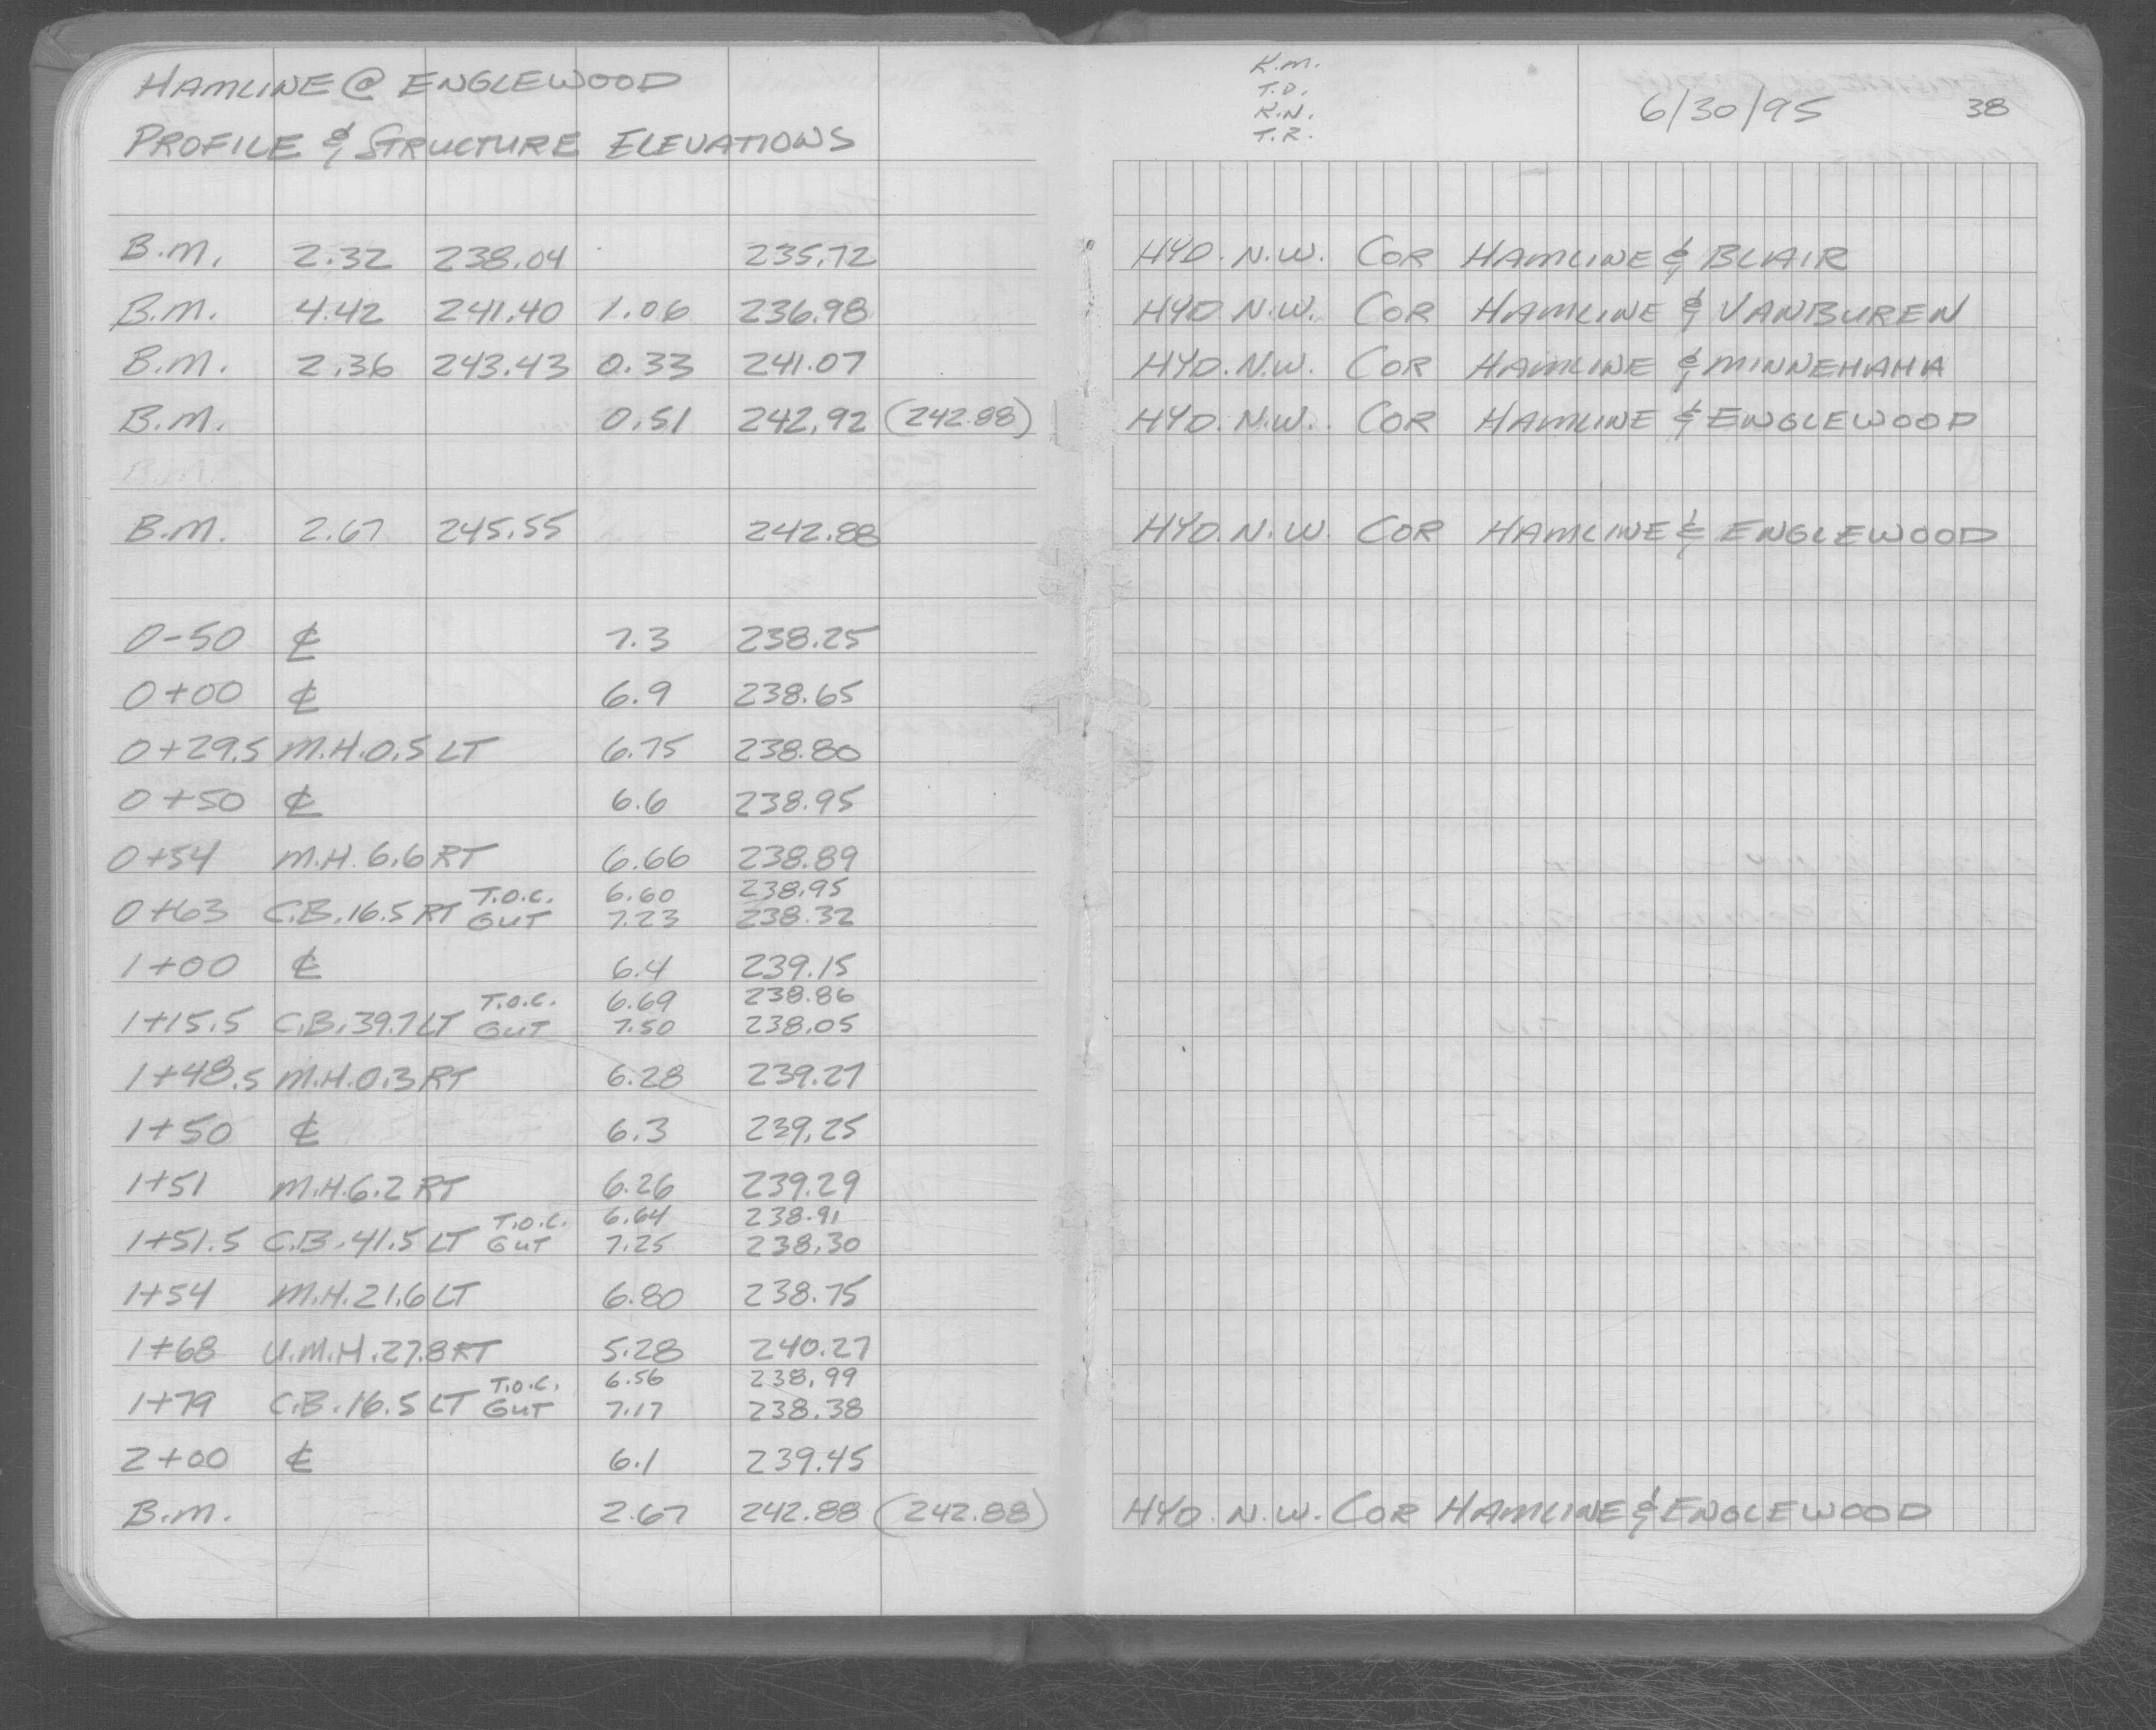 HAMLINE @ ENGLEWOOD
PROFILE & STRUCTURE ELEVATIONS
K.M.
T.D.
K.N.
T.R.
6/30/95 38
B.M. 2.32 238.04 235.72 HYD. N.W. COR HAMLINE & BLAIR
B.M. 4.42 241.40 1.06 236.98 HYD. N.W. COR HAMLINE & VANBUREN
B.M. 2.36 243.43 0.33 241.07 HYD. N.W. COR HAMLINE & MINNEHAHA
B.M. 0.51 242.92 (242.88) HYD. N.W. COR HAMLINE & ENGLEWOOD
B.M.
B.M. 2.67 245.55 242.88 HYD. N.W. COR HAMLINE & ENGLEWOOD
0-50 ℄ 7.3 238.25
0+00 ℄ 6.9 238.65
0+29.5 M.H. 0.5 LT 6.75 238.80
0+50 ℄ 6.6 238.95
0+54 M.H. 6.6 RT 6.66 238.89
T.O.C. 6.60 238.95
0+63 C.B. 16.5 RT GUT 7.23 238.32
1+00 ℄ 6.4 239.15
T.O.C. 6.69 238.86
1+15.5 C.B. 39.7 LT GUT 7.50 238.05
1+48.5 M.H. 0.3 RT 6.28 239.27
1+50 ℄ 6.3 239.25
1+51 M.H. 6.2 RT 6.26 239.29
T.O.C. 6.64 238.91
1+51.5 C.B. 41.5 LT GUT 7.25 238.30
1+54 M.H. 21.6 LT 6.80 238.75
1+68 U.M.H. 27.8 RT 5.28 240.27
T.O.C. 6.56 238.99
1+79 C.B. 16.5 LT GUT 7.17 238.38
2+00 ℄ 6.1 239.45
B.M. 2.67 242.88 (242.88) HYD. N.W. COR HAMLINE & ENGLEWOOD